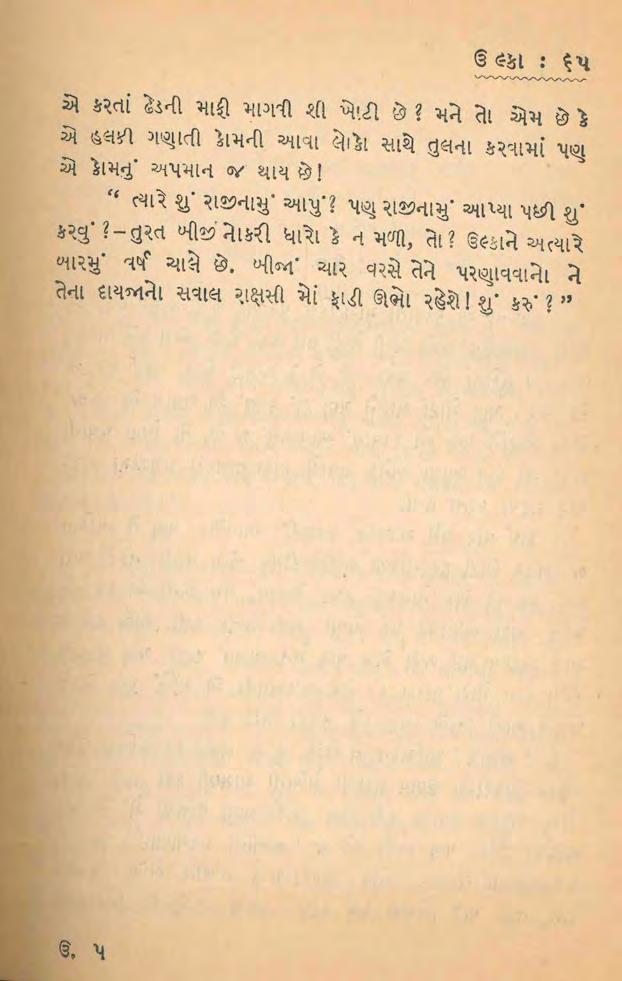 ઉલ્કા : ૬૫
એ કરતાં ઢેડની માફી માગવી શી ખોટી છે? મને તો એમ છે કે
એ હલકી ગણાતી કોમની આવા લોકો સાથે તુલના કરવામાં પણ
એ કોમનું અપમાન જ થાય છે!
“ ત્યારે શું રાજીનામું આપું? પણ રાજીનામું આપ્યા પછી શું
કરવું?–તુરત બીજી નોકરી ધારો કે ન મળી, તો? ઉલ્કાને અત્યારે
બારમું વર્ષ ચાલે છે. બીજાં ચાર વરસે તેને પરણાવવાનો ને
તેના દાયજાનો સવાલ રાક્ષસી મોં ફાડી ઊભો રહેશે! શું કરું?”
ઉ. ૫